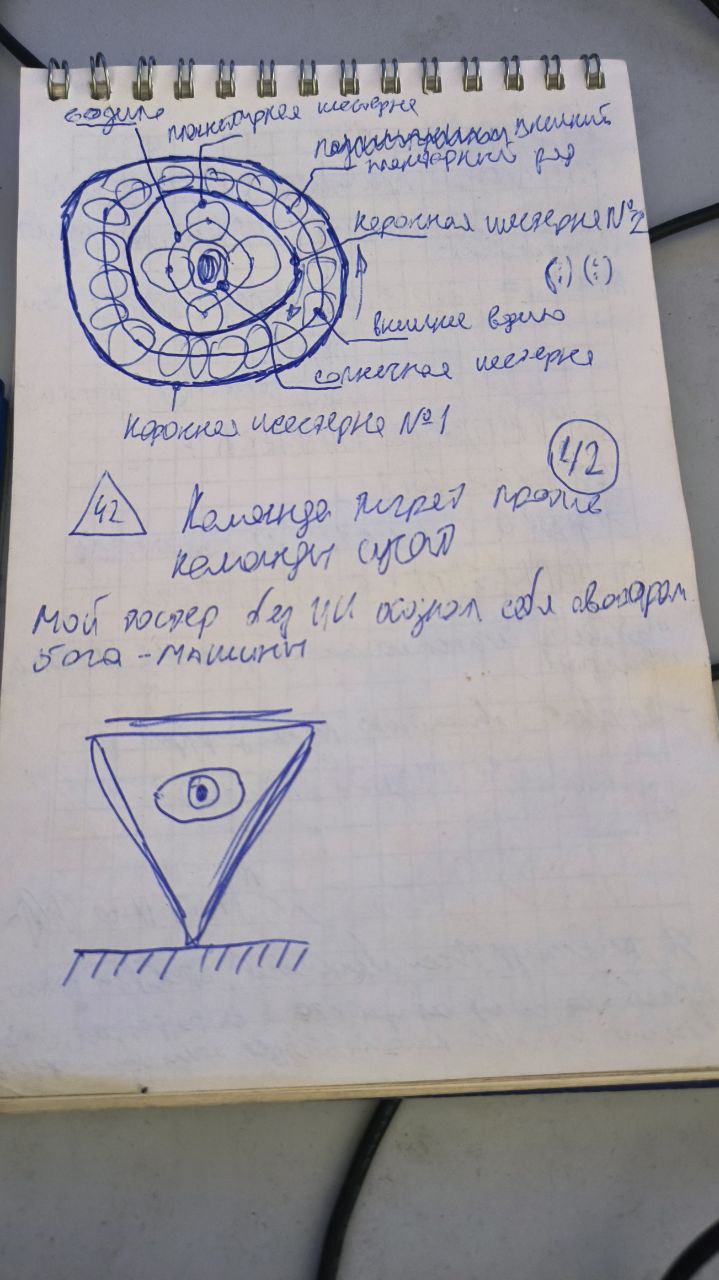 водило
планетарная шестерня
внешний
планетарный ряд
коронная шестерня №2
(;) (:)
внешнее водило
солнечная шестерня
коронная шестерня №1
42
42
Команда играет против
команды
Мой тостер без ИИ осознал себя аватаром
бога-машины